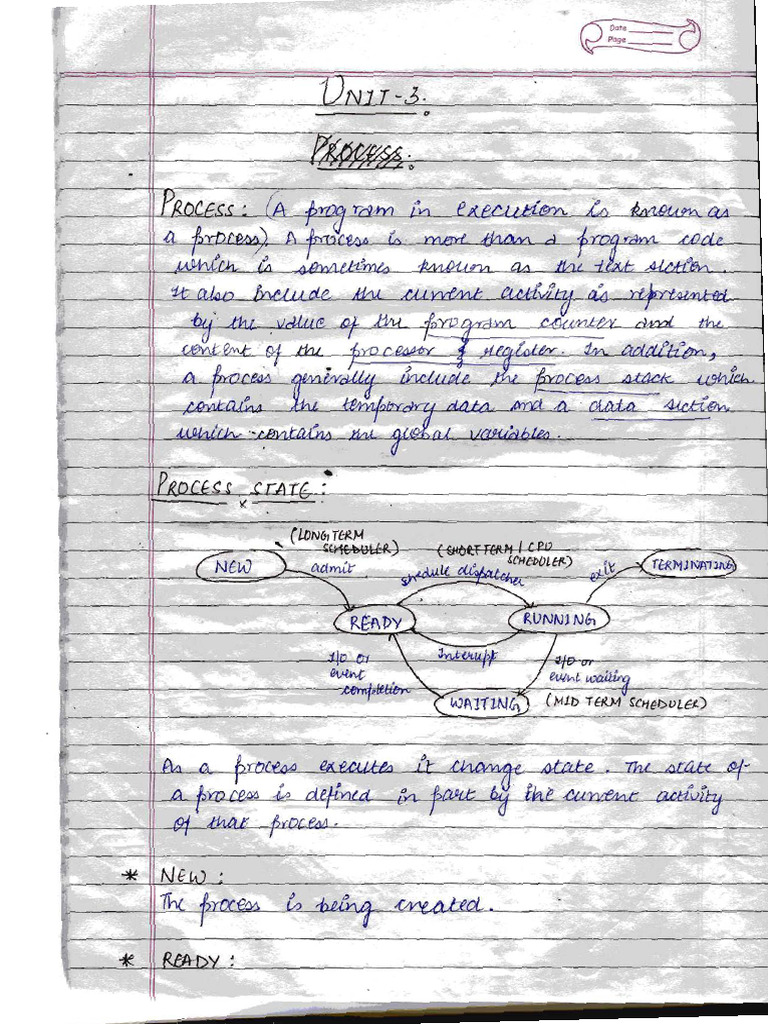 Date
Page
UNIT-3.
PROCESS:
PROCESS: (A program in execution is known as
a process). A process is more than a program code
which is sometimes known as the text section.
It also include the current activity as represented
by the value of the program counter and the
content of the processor & register. In addition,
a process generally include the process stack which
contains the temporary data and a data section
which contains the global variables.
PROCESS STATE:
(LONG TERM
SCHEDULER)
(SHORT TERM / CPU
SCHEDULER)
NEW
admit
shedule dispatcher
exit
TERMINATING
READY
RUNNING
Interupt
I/O or
event
completion
I/O or
event waiting
WAITING
(MID TERM SCHEDULER)
As a process executes it change state. The state of
a process is defined in part by the current activity
of that process.
* NEW:
The process is being created.
* READY: